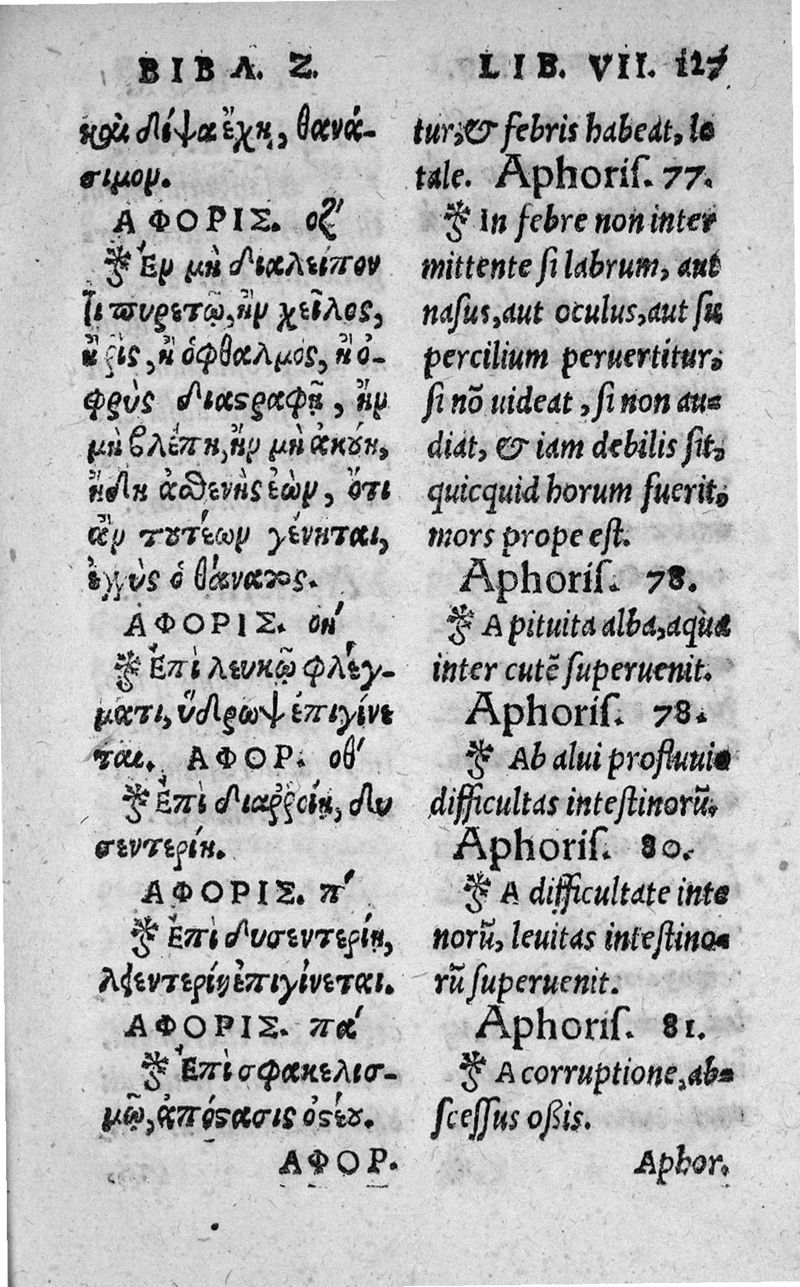 ΒΙΒΛ. Ζ.
καὶ δίψα ἔχῃ, θανά-
σιμον.
ΑΦΟΡΙΣ. οζ´
Ἐν μὴ διαλείπον
τι πυρετῷ, ἢν χεῖλος,
ἢ ῥὶς, ἢ ὀφθαλμὸς, ἢ ὀ-
φρὺς διαστραφῇ, ἢν
μὴ βλέπῃ, ἢν μὴ ἀκούῃ,
ἤδη ἀσθενὴς ἐὼν, ὅτι
ἂν τουτέων γένηται,
ἐγγὺς ὁ θάνατος.
ΑΦΟΡΙΣ. οη´
Ἐπὶ λευκῷ φλέγ-
ματι, ὕδρωψ ἐπιγίνε
ται. ΑΦΟΡ. οθ´
Ἐπὶ διαῤῥοίῃ, δυ
σεντερίη.
ΑΦΟΡΙΣ. π´
Ἐπὶ δυσεντερίῃ,
λειεντερίη ἐπιγίνεται.
ΑΦΟΡΙΣ. πα´
Ἐπὶ σφακελισ-
μῷ, ἀπόστασις ὀστέου.
ΑΦΟΡ.
LIB. VII. 127
tur, & febris habeat, le
tale. Aphoris. 77.
In febre non inter
mittente si labrum, aut
nasus, aut oculus, aut su
percilium peruertitur,
si nō uideat, si non au-
diat, & iam debilis sit,
quicquid horum fuerit,
mors prope est.
Aphoris. 78.
A pituita alba, aqua
inter cutē superuenit.
Aphoris. 78.
Ab alui profluuio
difficultas intestinorū.
Aphoris. 80.
A difficultate inte
norū, leuitas intestino-
rū superuenit.
Aphoris. 81.
A corruptione, ab-
scessus oßis.
Aphor.